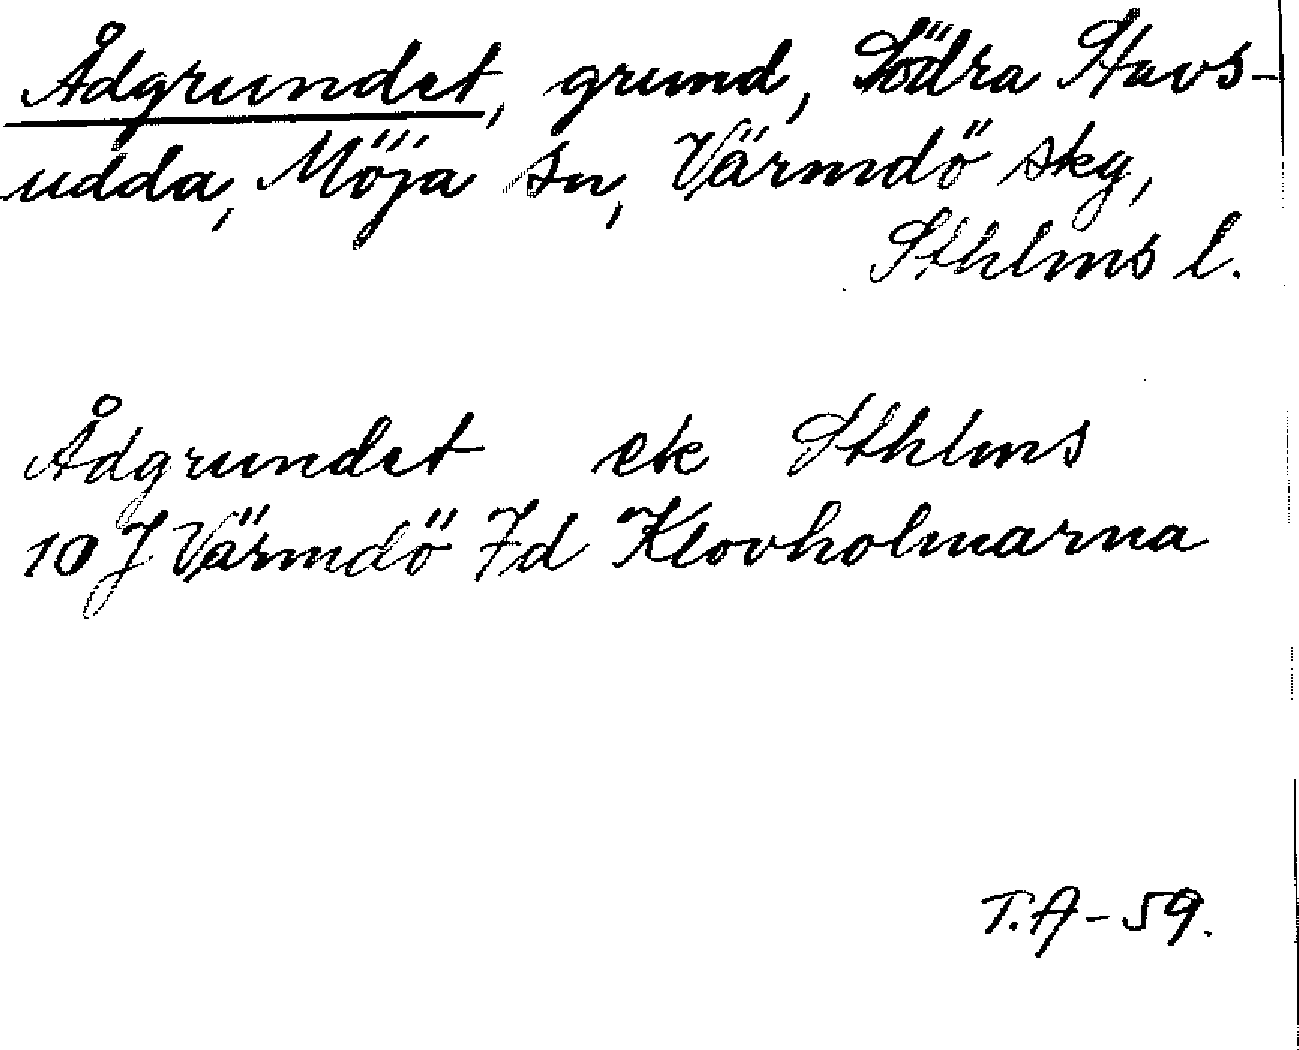 Ådgrundet, grund, Södra Stavs-
udda, Möja sn, Värmdö skg,
Sthlms l.
Ådgrundet ek Sthlms
10 J Värmdö 7d Klovholmarna
T.A-59.